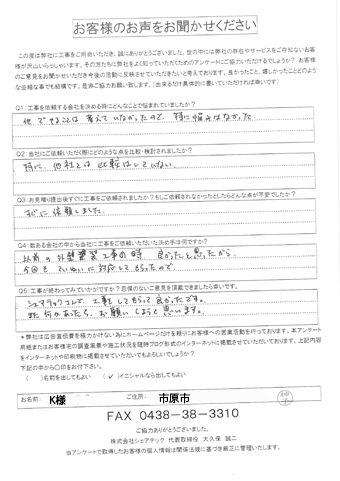 お客様のお声をお聞かせください
この度は弊社に工事をご用命いただき、誠にありがとうございました。世の中には弊社の存在やサービスをご存知ないお客
様が沢山いらっしゃいます。その方たちに弊社をよく知っていただくためのアンケートにご協力いただけるでしょうか？ お客様
のご意見をお聞かせいただき今後の活動に反映させていただきたいと考えております。良かったこと、嬉しかったことどのよう
な些細な事でも結構です。是非ご協力お願い致します。（出来るだけ具体的に書いていただければ幸いです）
Q1：工事を依頼する会社を決める時にどんなことで悩まれていましたか？
他でやることは考えていなかったので、特に悩みはなかった
Q2：当社にご依頼いただく際にどのような点を比較・検討されましたか？
特に、他社とは比較はしていない。
Q3：お見積り提出後すぐに工事をご依頼されましたか？もしご依頼されなかったとしたらどんな点が不安でしたか？
すぐに依頼しました。
Q4：数ある会社の中から当社に工事をご依頼いただいた決め手は何ですか？
以前の外壁塗装工事の時 良かったと思ったから。
今回もていねいに対応してもらったので
Q5：工事が終わってみていかがですか？忌憚のないご意見を頂戴できましたら幸いです。
シェアテックさんで工事をしてもらって良かったです。
また何かあったら、お願いしようと思います。
＊弊社は広告宣伝費を極力かけない為にホームページだけを頼りにお客様への営業活動を行っております。本アンケート
用紙またはお客様宅の調査風景や施工状況を随時ブログ形式のインターネットに掲載させていただいております。上記内容
をインターネットや印刷物に掲載させていただいてもよろしいでしょうか？
下記の中から〇印をお付下さい。
（ ）名前を出してもよい （✓）イニシャルなら出してもよい
お名前： K様 市原市
FAX 0438-38-3310
ご協力ありがとうございました。
株式会社シェアテック 代表取締役 大久保 誠二
当アンケートで取得したお客様の個人情報は関係法規に基づき厳正に管理いたします。